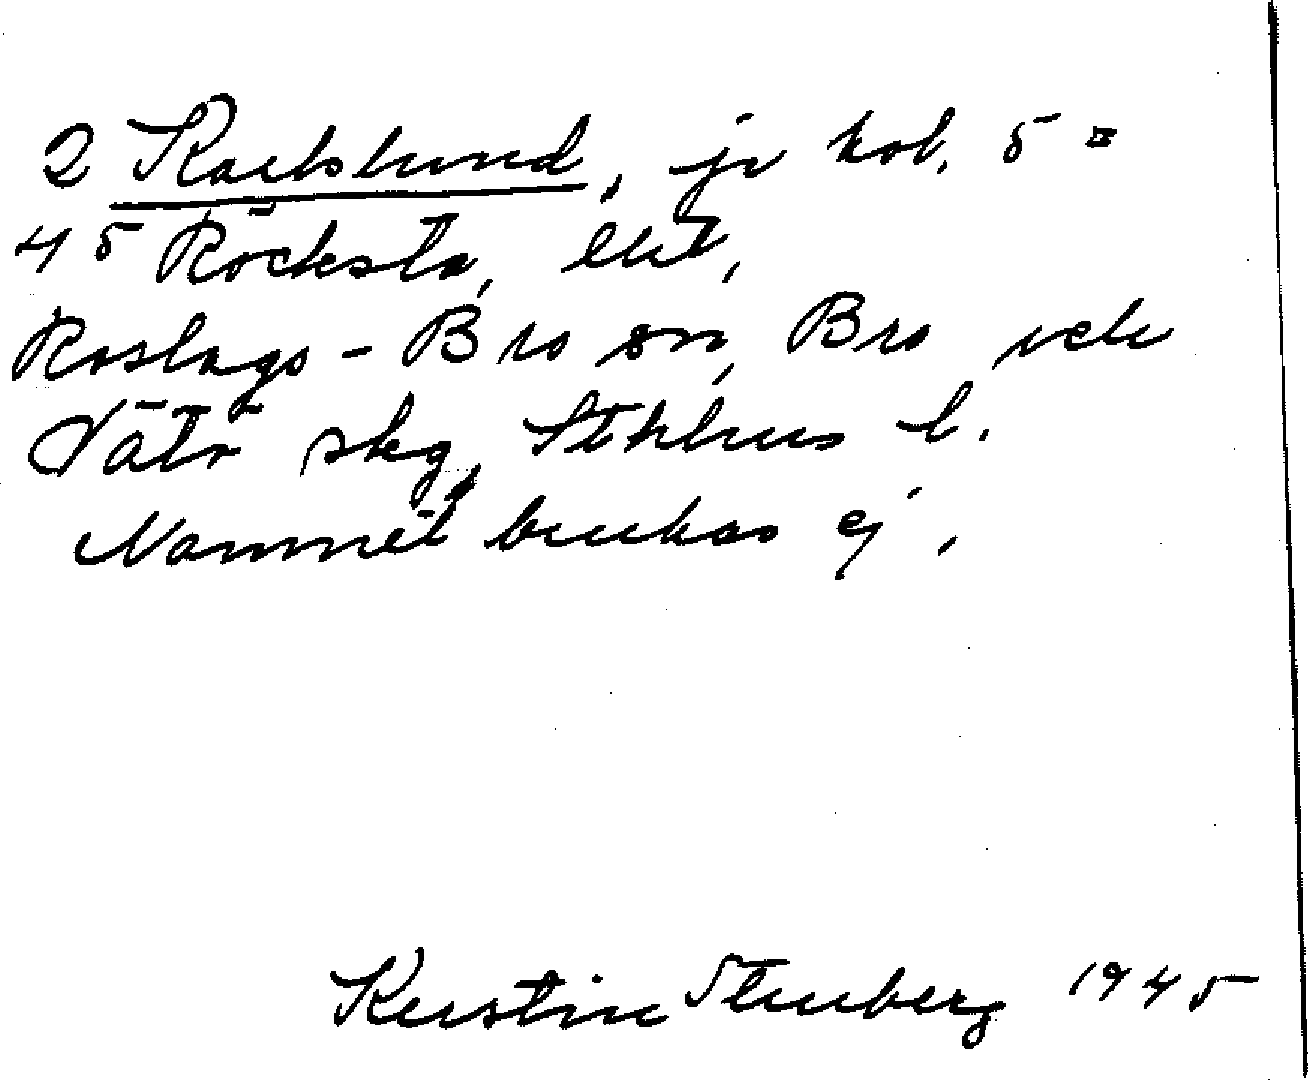 2 Karlslund, jr kol. 5 ¤
45 Röcksta, ekt,
Roslags-Bro sn, Bro och
Vätö skg, Sthlms l.
Namnet brukas ej.
Kerstin Stenberg 1945